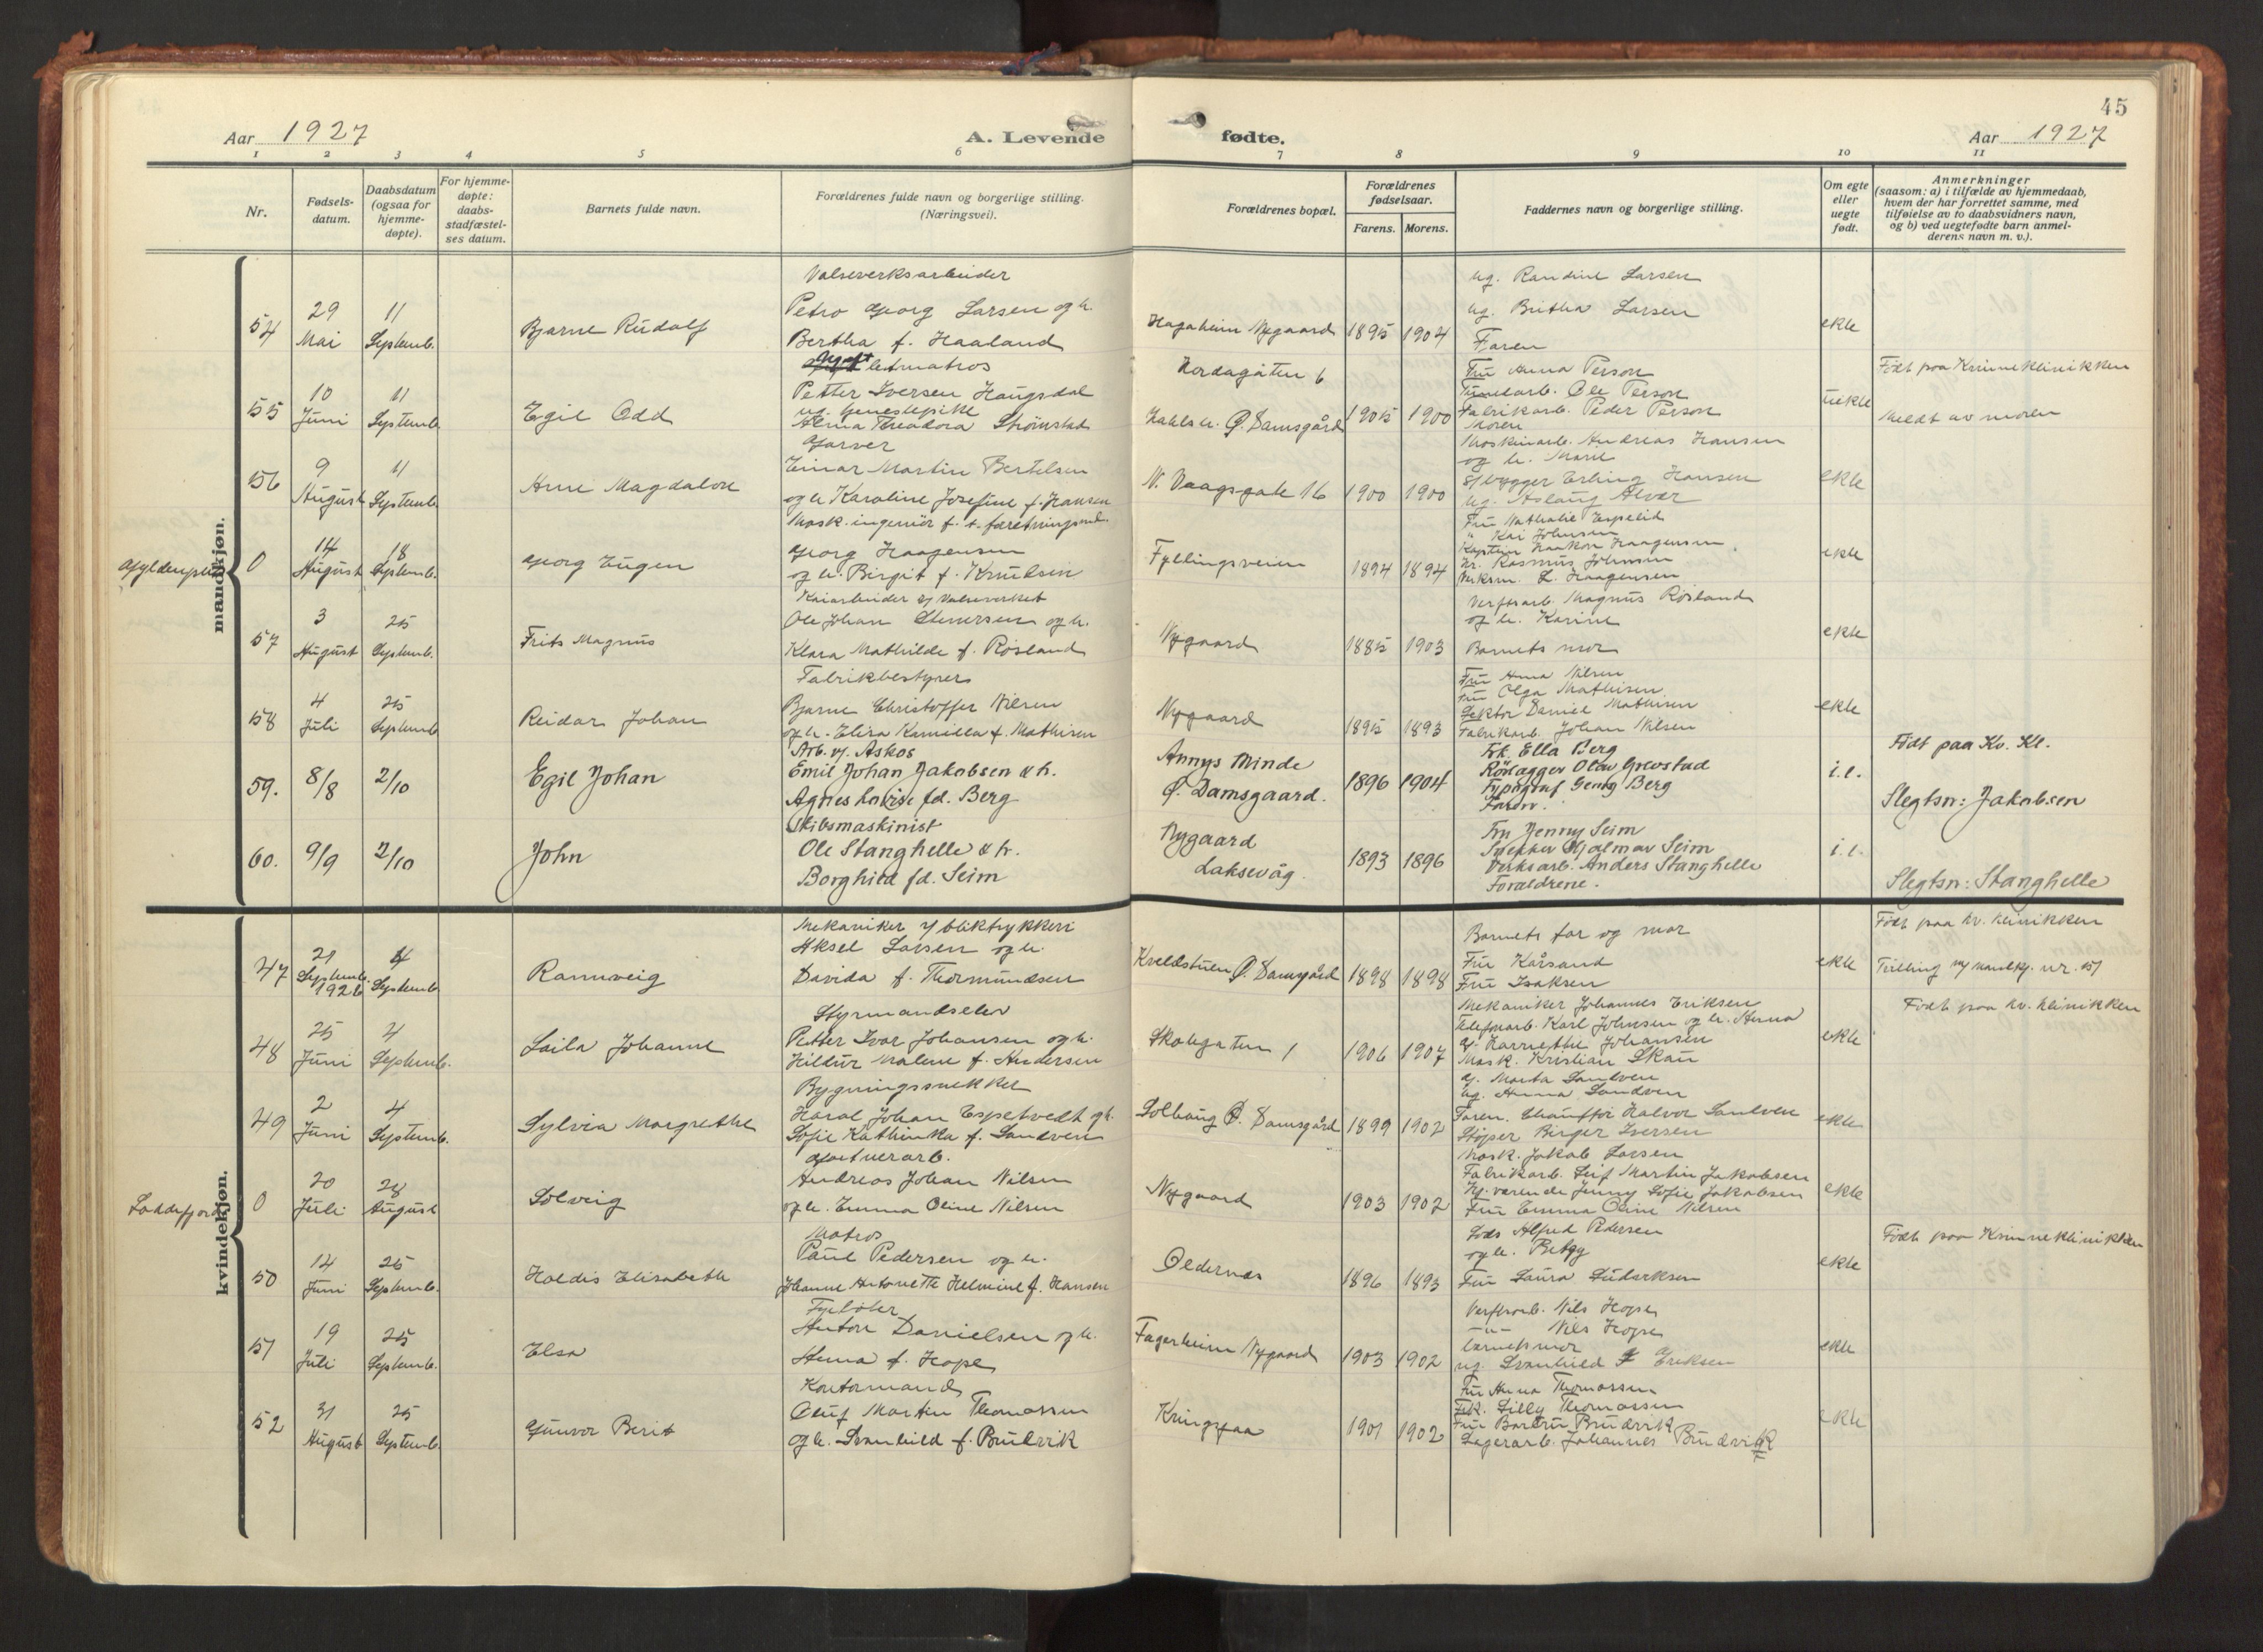 45
Aar 1927
A. Levende
fødte.
Aar 1927
1 2 3 4 5 6 7 8 9 10 11
Nr.
Fødsels-
datum.
Daabsdatum
(ogsaa for
hjemme-
døpte).
For hjemme-
døpte:
daabs-
stadfæstel-
ses datum.
Barnets fulde navn.
Forældrenes fulde navn og borgerlige stilling.
(Næringsvei).
Forældrenes bopæl.
Forældrenes
fødselsaar.
Farens. Morens.
Faddernes navn og borgerlige stilling.
Om egte
eller
uegte
født.
Anmerkninger
(saasom: a) i tilfælde av hjemmedaab,
hvem der har forrettet samme, med
tilføielse av to daabsvidners navn,
og b) ved uegtefødte barn anmel-
derens navn m. v.).
mandkjøn.
54
29
Mai
11
Septemb.
Bjarne Rudolf
Valseverksarbeider
Petro Georg Larsen og h.
Bertha f. Haaland
Hagaheim Nygaard
1895 1904
ug. Randine Larsen
ug. Britha Larsen
Faren
ekte
55
10
Juni
11
Septemb.
Egil Odd
letmatros
Petter Iversen Haugsdal
ug. tjenestepike
Alma Theodora Strømstad
Nordagåten 6
Kahls h. Ø. Damsgård
1905 1900
Fru Anna Person
Ole Person
Fabrikarb. Peder Person
Moren
uekte
Født paa Kvinneklinikken
Meldt av moren
56
9
August
11
Septemb.
Arne Magdalon
Garver
Einar Martin Bertelsen
og h. Karoline Josefine f. Hansen
N. Vaagsgate 16
1900 1900
Maskinarb. Andreas Hansen
og h. Marie
Erling Hansen
ug. Aslaug Alver
ekte
Gyldenpris
0
14
August
18
Septemb.
Georg Eugen
Mask. ingeniør f. t. forretningsmd.
Georg Haagensen
og h. Birgit f. Knudsen
Fyllingsveien
1894 1894
Fru Nathalie Espelid
" Kai Johnsen
Kaptein Haakon Haagensen
Hr. Rasmus Johnsen
Verksm. L. Haagensen
ekte
57
3
August
25
Septemb.
Frits Magnus
Kaiarbeider v/ Valseverket
Ole Johan Stenersen og h.
Klara Mathilde f. Røsland
Nygaard
1885 1903
Verftsarb. Magnus Røsland
og h. Karine
Barnets mor
ekte
58
4
Juli
25
Septemb
Reidar Johan
Fabrikbestyrer
Bjarne Christoffer Nilsen
og h. Elisa Kamilla f. Mathisen
Nygaard
1895 1893
Fru Anna Nilsen
Fru Olga Mathisen
Daniel Mathisen
Fabrikarb. Johan Nilsen
ekte
59.
8/8
2/10
Egil Johan
Arb. v/ Askos
Emil Johan Jakobsen & h.
Agnes Lovise fd. Berg
Annys Minde
Ø. Damsgaard.
1896 1904
Frk. Ella Berg
Rørlægger Olav Grevstad
Typograf Georg Berg
Faren.
i.e.
Født paa Kv. Kl.
Slegtsn: Jakobsen
60.
9/9
2/10
John
Skibsmaskinist
Ole Stanghelle & h.
Borghild fd. Seim
Nygaard
Laksevåg.
1893 1896
Fru Jenny Seim
Snekker Hjalmar Seim
Verksarb. Anders Stanghelle
Forældrene.
i.e.
Slegtsn: Stanghelle
kvindekjøn.
47
21
Septemb.
1926
4
Septemb
Rannveig
Mekaniker v/ bliktrykkeri
Aksel Larsen og h.
Davida f. Thormundsen
Kveldstuen Ø. Damsgård
1898 1898
Barnets far og mor
Fru Kårsand
Fru Isaksen
ekte
Født paa kv. klinikken
Tvilling m/ mandkj. nr. 51
48
25
Juni
4
Septemb.
Laila Johanne
Styrmandselev
Petter Ivar Johansen og h.
Hildur Malene f. Andersen
Skolegaten 1
1906 1907
Mekaniker Johannes Eriksen
Telefonarb. Karl Johnsen og h. Anna
g. Harriethe Johansen
Mask. Kristian Skau
ekte
Født paa kv. klinikken
49
2
Juni
4
Septemb.
Sylvia Margrethe
Bygningssnekker
Haral Johan Espetvedt og h.
Sofie Kathinka f. Sandven
Solhaug Ø. Damsgård
1899 1902
g. Marta Sandven
ug. Anna Sandven
Faren. Chauffør Halvor Sandven
Støper Birger Iversen
ekte
Loddefjord
0
20
Juli
28
August
Solveig
Gartnerarb.
Andreas Johan Nilsen
og h. Emma Oline Nilsen
Nygaard
1903 1902
Mask. Jakob Larsen
Fabrikarb. Leif Martin Jakobsen
Hj. værende Jenny Sofie Jakobsen
Fru Emma Oline Nilsen
ekte
50
14
Juni
25
Septemb.
Haldis Elisabeth
Matros
Paul Pedersen og h.
Johanne Antonette Helmine f. Hansen
Oldernes
1896 1893
Lods Alfred Pedersen
og h. Betzy
Fru Laura Ludviksen
ekte
Født paa Kvinneklinikken
51
19
Juli
25
Septemb.
Elsa
Fyrbøter
Anton Danielsen og h.
Anna f. Hope
Fagerheim Nygaard
1903 1902
Verftsarb. Nils Hope
—"— Nils Hope
barnets mor
ug. Svanhild Eriksen
ekte
52
31
August
25
Septemb.
Gunvor Berit
Kontormand
Oluf Martin Thomassen
og h. Svanhild f. Brudvik
Kringsjaa
1901 1902
Fru Anna Thomassen
Frk. Lilly Thomassen
Fru Bartru Brudvik
Lagerarb. Johannes Brudvik
ekte